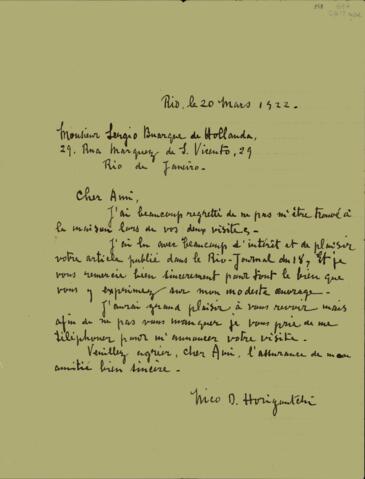 Rio, le 20 Mars 1922.
Monsieur Sergio Buarque de Hollanda,
29, Rua Marquez de S. Vicente, 29
Rio de Janeiro.
Cher Ami,
J'ai beaucoup regretté de ne pas m'être trouvé à
la maison lors de vos deux visites.
J'ai lu avec beaucoup d'intérêt et de plaisir
votre article publié dans le Rio-Journal du 18, Et je
vous remercie bien sincèrement pour tout le bien que
vous y exprimez sur mon modeste ouvrage.
J'aurai grand plaisir à vous revoir mais
afin de ne pas vous manquer je vous prie de me
téléphoner pour m'annoncer votre visite.
Veuillez agréer, cher Ami, l'assurance de mon
amitié bien sincère.
Nico D. Horigoutchi